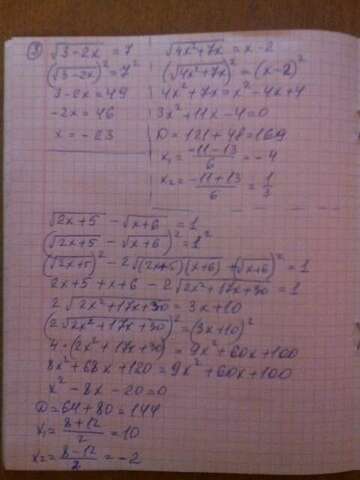 ③ √3-2x = 7
(√3-2x)² = 7²
3-2x = 49
-2x = 46
x = -23
√4x²+7x = x-2
(√4x²+7x)² = (x-2)²
4x²+7x = x²-4x+4
3x²+11x-4=0
D = 121+48=169
x₁ = -11-13/6 = -4
x₂ = -11+13/6 = 1/3
√2x+5 - √x+6 = 1
(√2x+5 - √x+6)² = 1²
(√2x+5)² - 2√(2x+5)(x+6) + (√x+6)² = 1
2x+5+x+6 - 2√2x²+17x+30 = 1
2√2x²+17x+30 = 3x+10
(2√2x²+17x+30)² = (3x+10)²
4·(2x²+17x+30) = 9x²+60x+100
8x²+68x+120 = 9x²+60x+100
x²-8x-20=0
D = 64+80=144
x₁ = 8+12/2 = 10
x₂ = 8-12/2 = -2